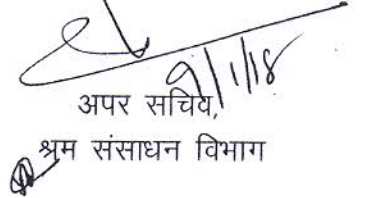 9/1/18
अपर सचिव,
श्रम संसाधन विभाग